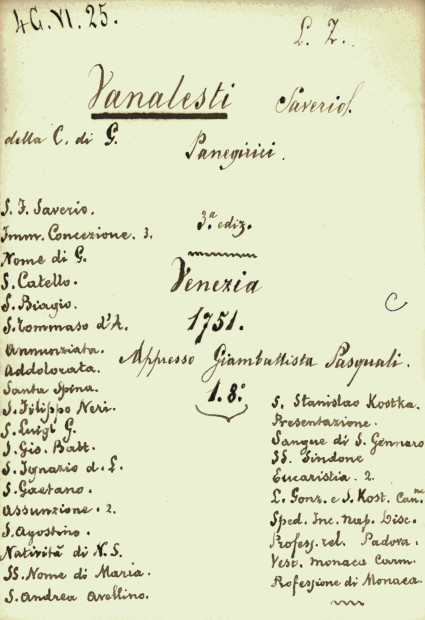 4G. VI. 25.
L. Z.
Vanalesti Saverio.
della C. di G.
Panegirici.
3.ª ediz.
Venezia
1751.
Appresso Giambattista Pasquali.
1. 8.º
C
S. F. Saverio.
Imm. Concezione. 3.
Nome di G.
S. Catello.
S. Biagio.
S. Tommaso d'A.
Annunziata.
Addolorata.
Santa Spina.
S. Filippo Neri.
S. Luigi G.
S. Gio. Batt.
S. Ignazio d. L.
S. Gaetano.
Assunzione. 2.
S. Agostino.
Natività di N. S.
SS. Nome di Maria.
S. Andrea Avellino.
S. Stanislao Kostka.
Presentazione.
Sangue di S. Gennaro
SS. Sindone
Eucaristia. 2
L. Gonz. e S. Kost. Can.ne
Sped. Inc. Disc.
Profess. rel. Padova.
Vest. monaca Carm.
Professione di Monaca.